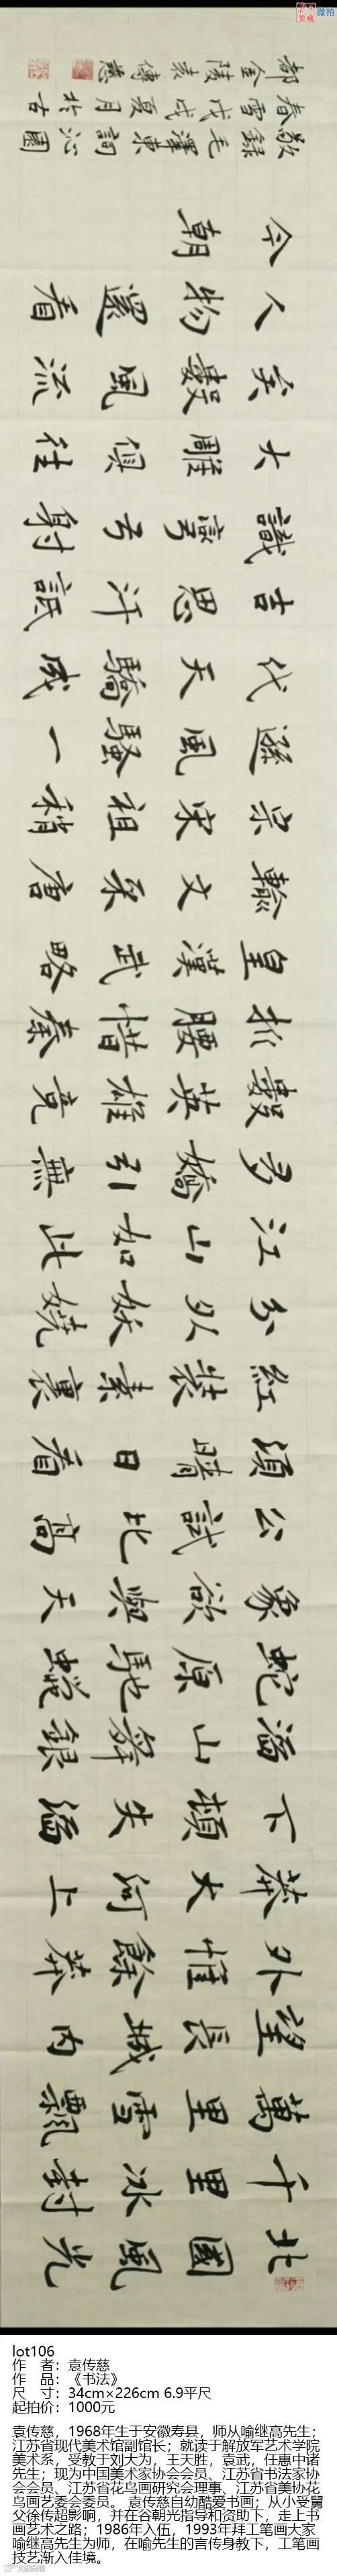 北國風光
千里冰封
萬里雪飄
望長城内
外惟餘莽
莽大河上
下頓失滔
滔山舞銀
蛇原馳蠟
象欲與天
公試比高
須晴日看
紅裝素裹
分外妖嬈
江山如此
多嬌引無
數英雄競
折腰惜秦
皇漢武略
輸文采唐
宗宋祖稍
遜風騷一
代天驕成
吉思汗祇
識彎弓射
大雕俱往
矣數風流
人物還看
今朝
敬錄毛澤東詞沁園
春雪戊戌夏月於古
都金陵袁傳慈
微拍
lot106
作　者：袁传慈
作　品：《书法》
尺　寸：34cm×226cm 6.9平尺
起拍价：1000元
袁传慈，1968年生于安徽寿县，师从喻继高先生；
江苏省现代美术馆副馆长；就读于解放军艺术学院
美术系，受教于刘大为，王天胜，袁武，任惠中诸
先生；现为中国美术家协会会员、江苏省书法家协
会会员、江苏省花鸟画研究会理事、江苏省美协花
鸟画艺委会委员。 袁传慈自幼酷爱书画；从小受舅
父徐传超影响，并在谷朝光指导和资助下，走上书
画艺术之路；1986年入伍，1993年拜工笔画大家
喻继高先生为师，在喻先生的言传身教下，工笔画
技艺渐入佳境。